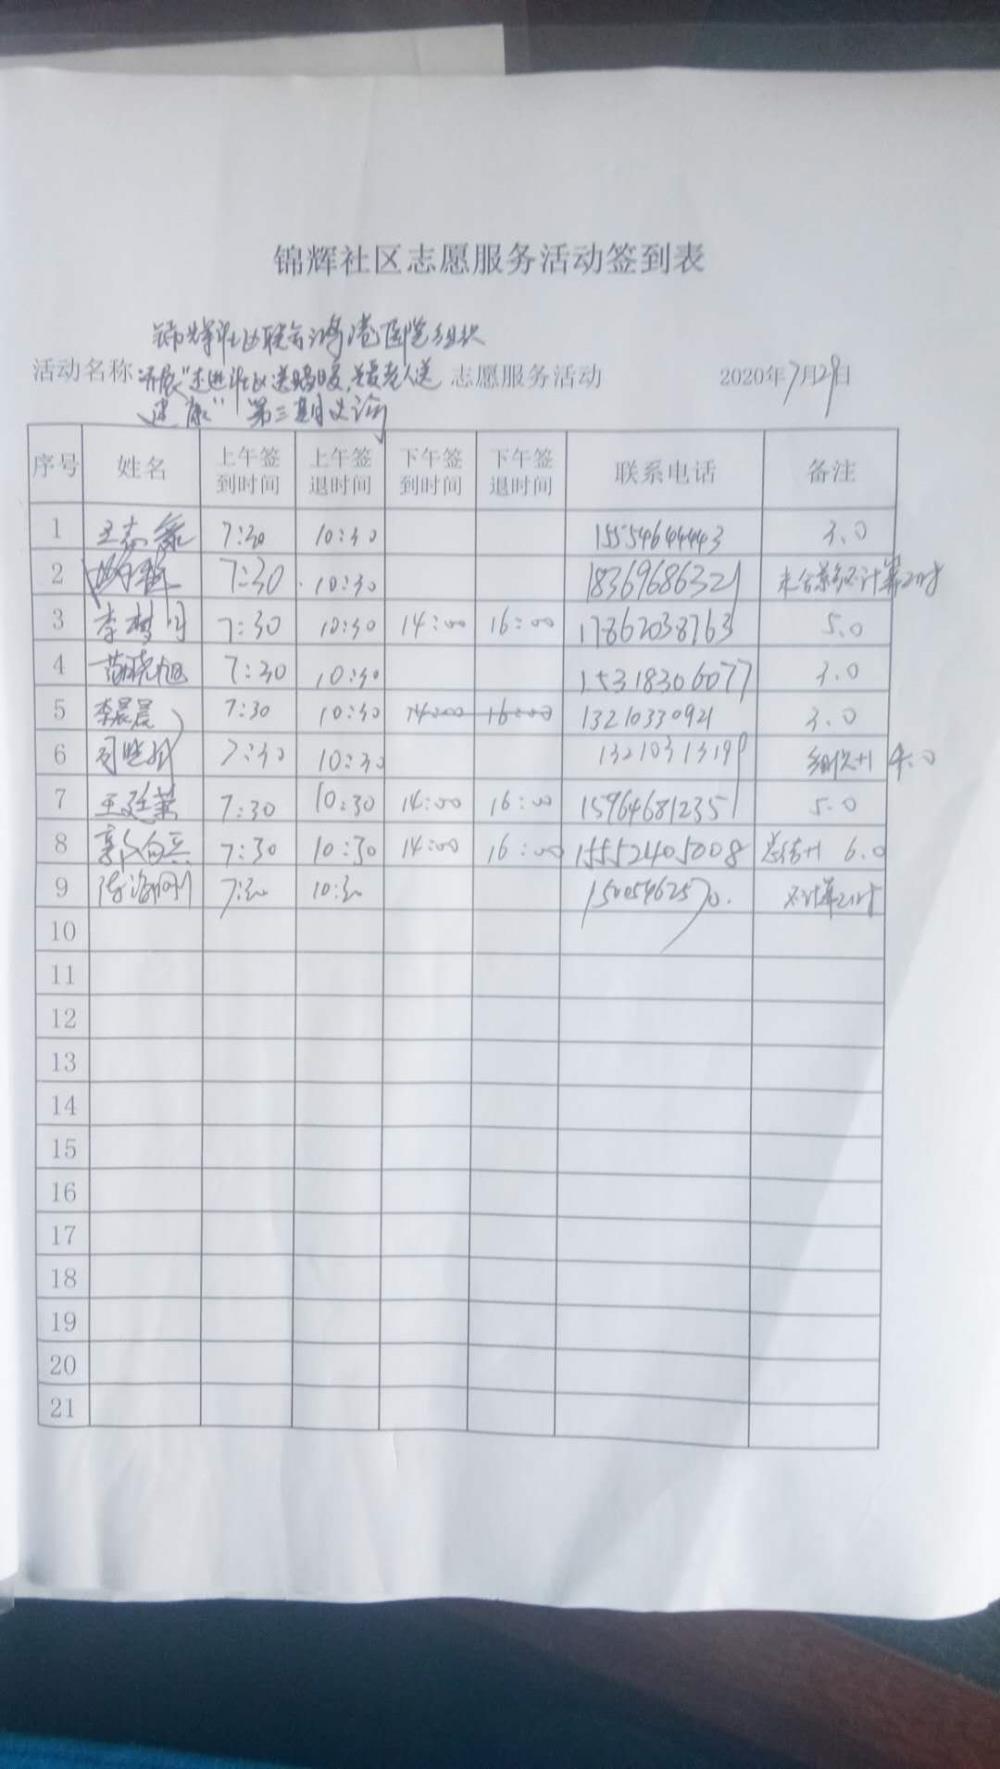 锦辉社区志愿服务活动签到表
锦辉社区联合鸿港医院组织
活动名称 开展"走进社区送温暖,关爱老人送 志愿服务活动 2020年7月29日
健康" 第三期义诊
序号 姓名 上午签到时间 上午签退时间 下午签到时间 下午签退时间 联系电话 备注
1 王志 7:30 10:30 15554644443 3.0
2 7:30 10:30 18369686321 未合影 不计算2小时
3 李梦月 7:30 10:30 14:00 16:00 17862038763 5.0
4 范晓旭 7:30 10:30 15318306077 3.0
5 李晨晨 7:30 10:30 14:00 16:00 13210330921 3.0
6 司 7:30 10:30 13210313199 组织+1 4.0
7 王廷 7:30 10:30 14:00 16:00 15964681235 5.0
8 郭向兵 7:30 10:30 14:00 16:00 15552405008 总结+1 6.0
9 陈海刚 7:30 10:30 15005462570 不计算2小时
10
11
12
13
14
15
16
17
18
19
20
21